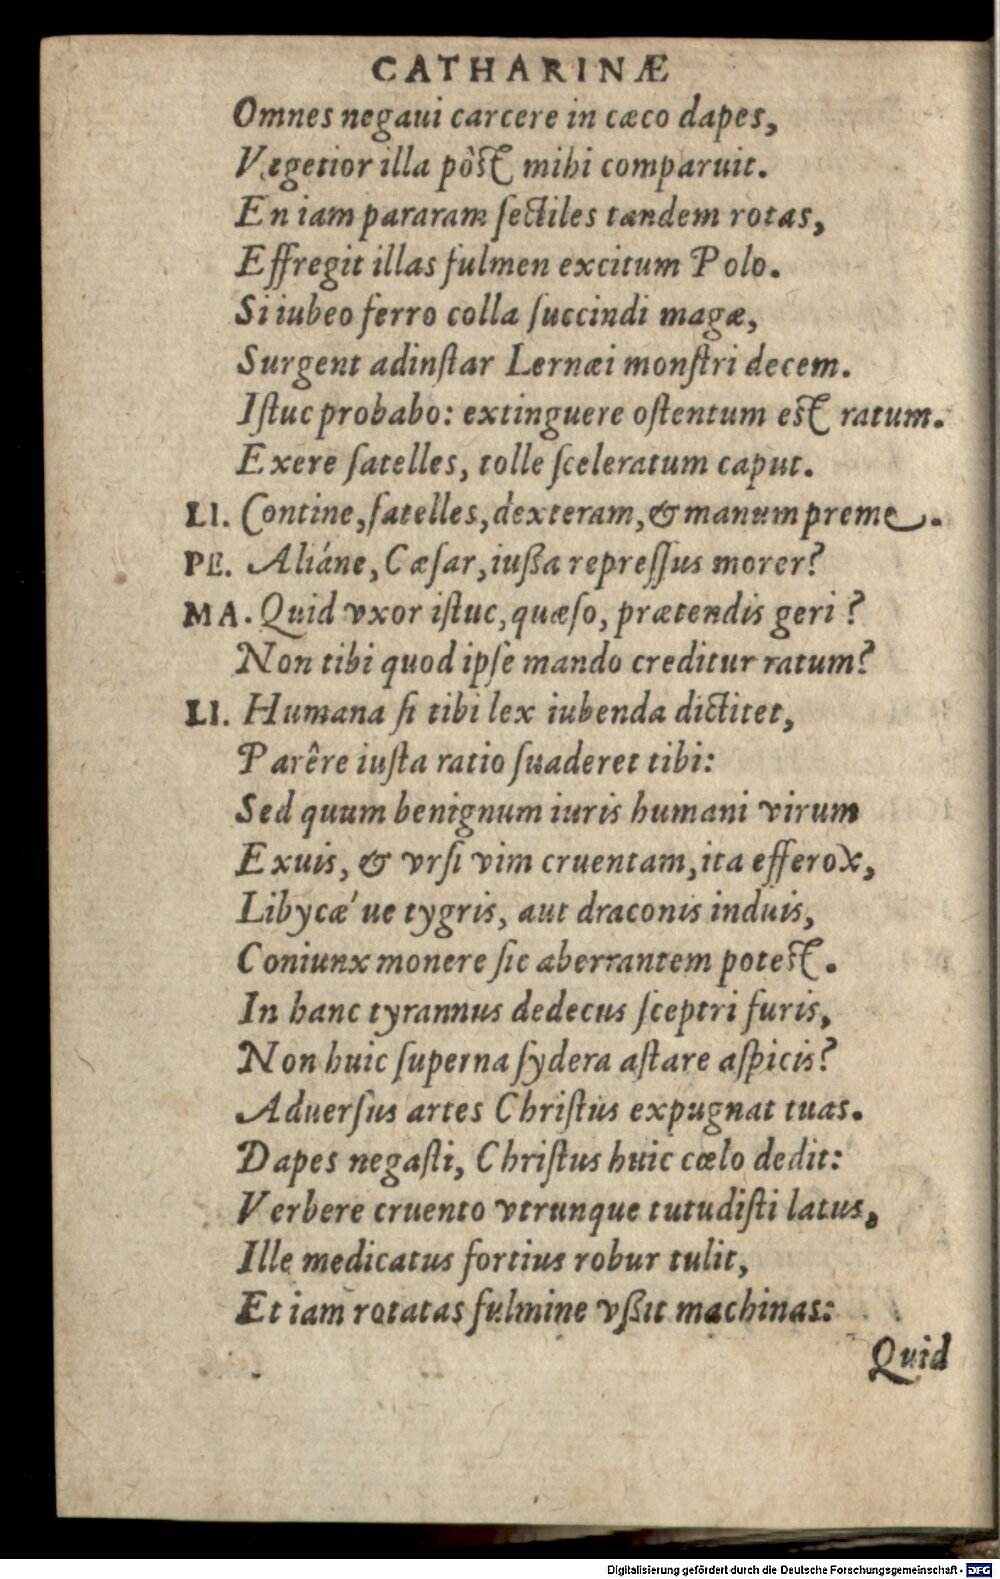 CATHARINÆ
Omnes negaui carcere in cæco dapes,
Vegetior illa pòst mihi comparuit.
En iam pararam sectiles tandem rotas,
Effregit illas fulmen excitum Polo.
Si iubeo ferro colla succindi magæ,
Surgent adinstar Lernæi monstri decem.
Istuc probabo: extinguere ostentum est ratum.
Exere satelles, tolle sceleratum caput.
LI. Contine, satelles, dexteram, & manum preme.
PE. Aliáne, Cæsar, iußa repressus morer?
MA. Quid vxor istuc, quæso, prætendis geri?
Non tibi quod ipse mando creditur ratum?
LI. Humana si tibi lex iubenda dictitet,
Parêre iusta ratio suaderet tibi:
Sed quum benignum iuris humani virum
Exuis, & vrsi vim cruentam, ita efferox,
Libycæ'ue tygris, aut draconis induis,
Coniunx monere sic aberrantem potest.
In hanc tyrannus dedecus sceptri furis,
Non huic superna sydera astare aspicis?
Aduersus artes Christus expugnat tuas.
Dapes negasti, Christus huic cœlo dedit:
Verbere cruento vtrunque tutudisti latus,
Ille medicatus fortius robur tulit,
Et iam rotatas fulmine vßit machinas:
Quid
Digitalisierung gefördert durch die Deutsche Forschungsgemeinschaft - DFG